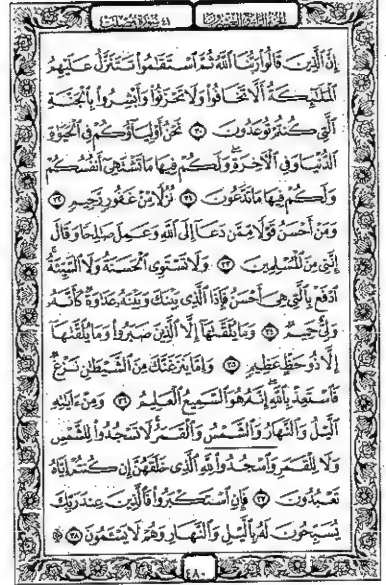 الجزء الرابع والعشرون
٤١ سورة فصلت
إِنَّ ٱلَّذِينَ قَالُوا۟ رَبُّنَا ٱللَّهُ ثُمَّ ٱسْتَقَـٰمُوا۟ تَتَنَزَّلُ عَلَيْهِمُ
ٱلْمَلَـٰٓئِكَةُ أَلَّا تَخَافُوا۟ وَلَا تَحْزَنُوا۟ وَأَبْشِرُوا۟ بِٱلْجَنَّةِ
ٱلَّتِى كُنتُمْ تُوعَدُونَ ٣٠ نَحْنُ أَوْلِيَآؤُكُمْ فِى ٱلْحَيَوٰةِ
ٱلدُّنْيَا وَفِى ٱلْـَٔاخِرَةِ ۖ وَلَكُمْ فِيهَا مَا تَشْتَهِىٓ أَنفُسُكُمْ
وَلَكُمْ فِيهَا مَا تَدَّعُونَ ٣١ نُزُلًا مِّنْ غَفُورٍ رَّحِيمٍ ٣٢
وَمَنْ أَحْسَنُ قَوْلًا مِّمَّن دَعَآ إِلَى ٱللَّهِ وَعَمِلَ صَـٰلِحًا وَقَالَ
إِنَّنِى مِنَ ٱلْمُسْلِمِينَ ٣٣ وَلَا تَسْتَوِى ٱلْحَسَنَةُ وَلَا ٱلسَّيِّئَةُ ۚ
ٱدْفَعْ بِٱلَّتِى هِىَ أَحْسَنُ فَإِذَا ٱلَّذِى بَيْنَكَ وَبَيْنَهُۥ عَدَٰوَةٌ كَأَنَّهُۥ
وَلِىٌّ حَمِيمٌ ٣٤ وَمَا يُلَقَّىٰهَآ إِلَّا ٱلَّذِينَ صَبَرُوا۟ وَمَا يُلَقَّىٰهَآ
إِلَّا ذُو حَظٍّ عَظِيمٍ ٣٥ وَإِمَّا يَنزَغَنَّكَ مِنَ ٱلشَّيْطَـٰنِ نَزْغٌ
فَٱسْتَعِذْ بِٱللَّهِ ۖ إِنَّهُۥ هُوَ ٱلسَّمِيعُ ٱلْعَلِيمُ ٣٦ وَمِنْ ءَايَـٰتِهِ
ٱلَّيْلُ وَٱلنَّهَارُ وَٱلشَّمْسُ وَٱلْقَمَرُ ۚ لَا تَسْجُدُوا۟ لِلشَّمْسِ
وَلَا لِلْقَمَرِ وَٱسْجُدُوا۟ لِلَّهِ ٱلَّذِى خَلَقَهُنَّ إِن كُنتُمْ إِيَّاهُ
تَعْبُدُونَ ٣٧ فَإِنِ ٱسْتَكْبَرُوا۟ فَٱلَّذِينَ عِندَ رَبِّكَ
يُسَبِّحُونَ لَهُۥ بِٱلَّيْلِ وَٱلنَّهَارِ وَهُمْ لَا يَسْـَٔمُونَ ۩ ٣٨
٤٨٠